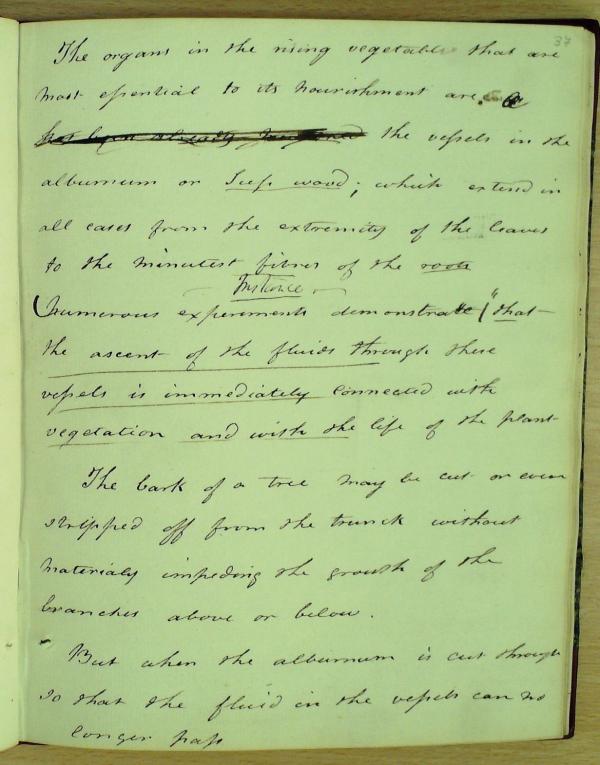 37
The organs in the rising vegetable that are
most essential to its nourishment are
has been already the vessels in the
alburnum or Sap wood; which extend in
all cases from the extremity of the leaves
to the minutest fibres of the roots
Instance
(numerous experiments demonstrate/ "that
the ascent of the fluids through these
vessels is immediately connected with
vegetation and with the life of the plant
The bark of a tree may be cut or even
stripped off from the trunck without
materialy impeding the growth of the
branches above or below.
But when the alburnum is cut through
so that the fluid in the vessels can no
longer pass